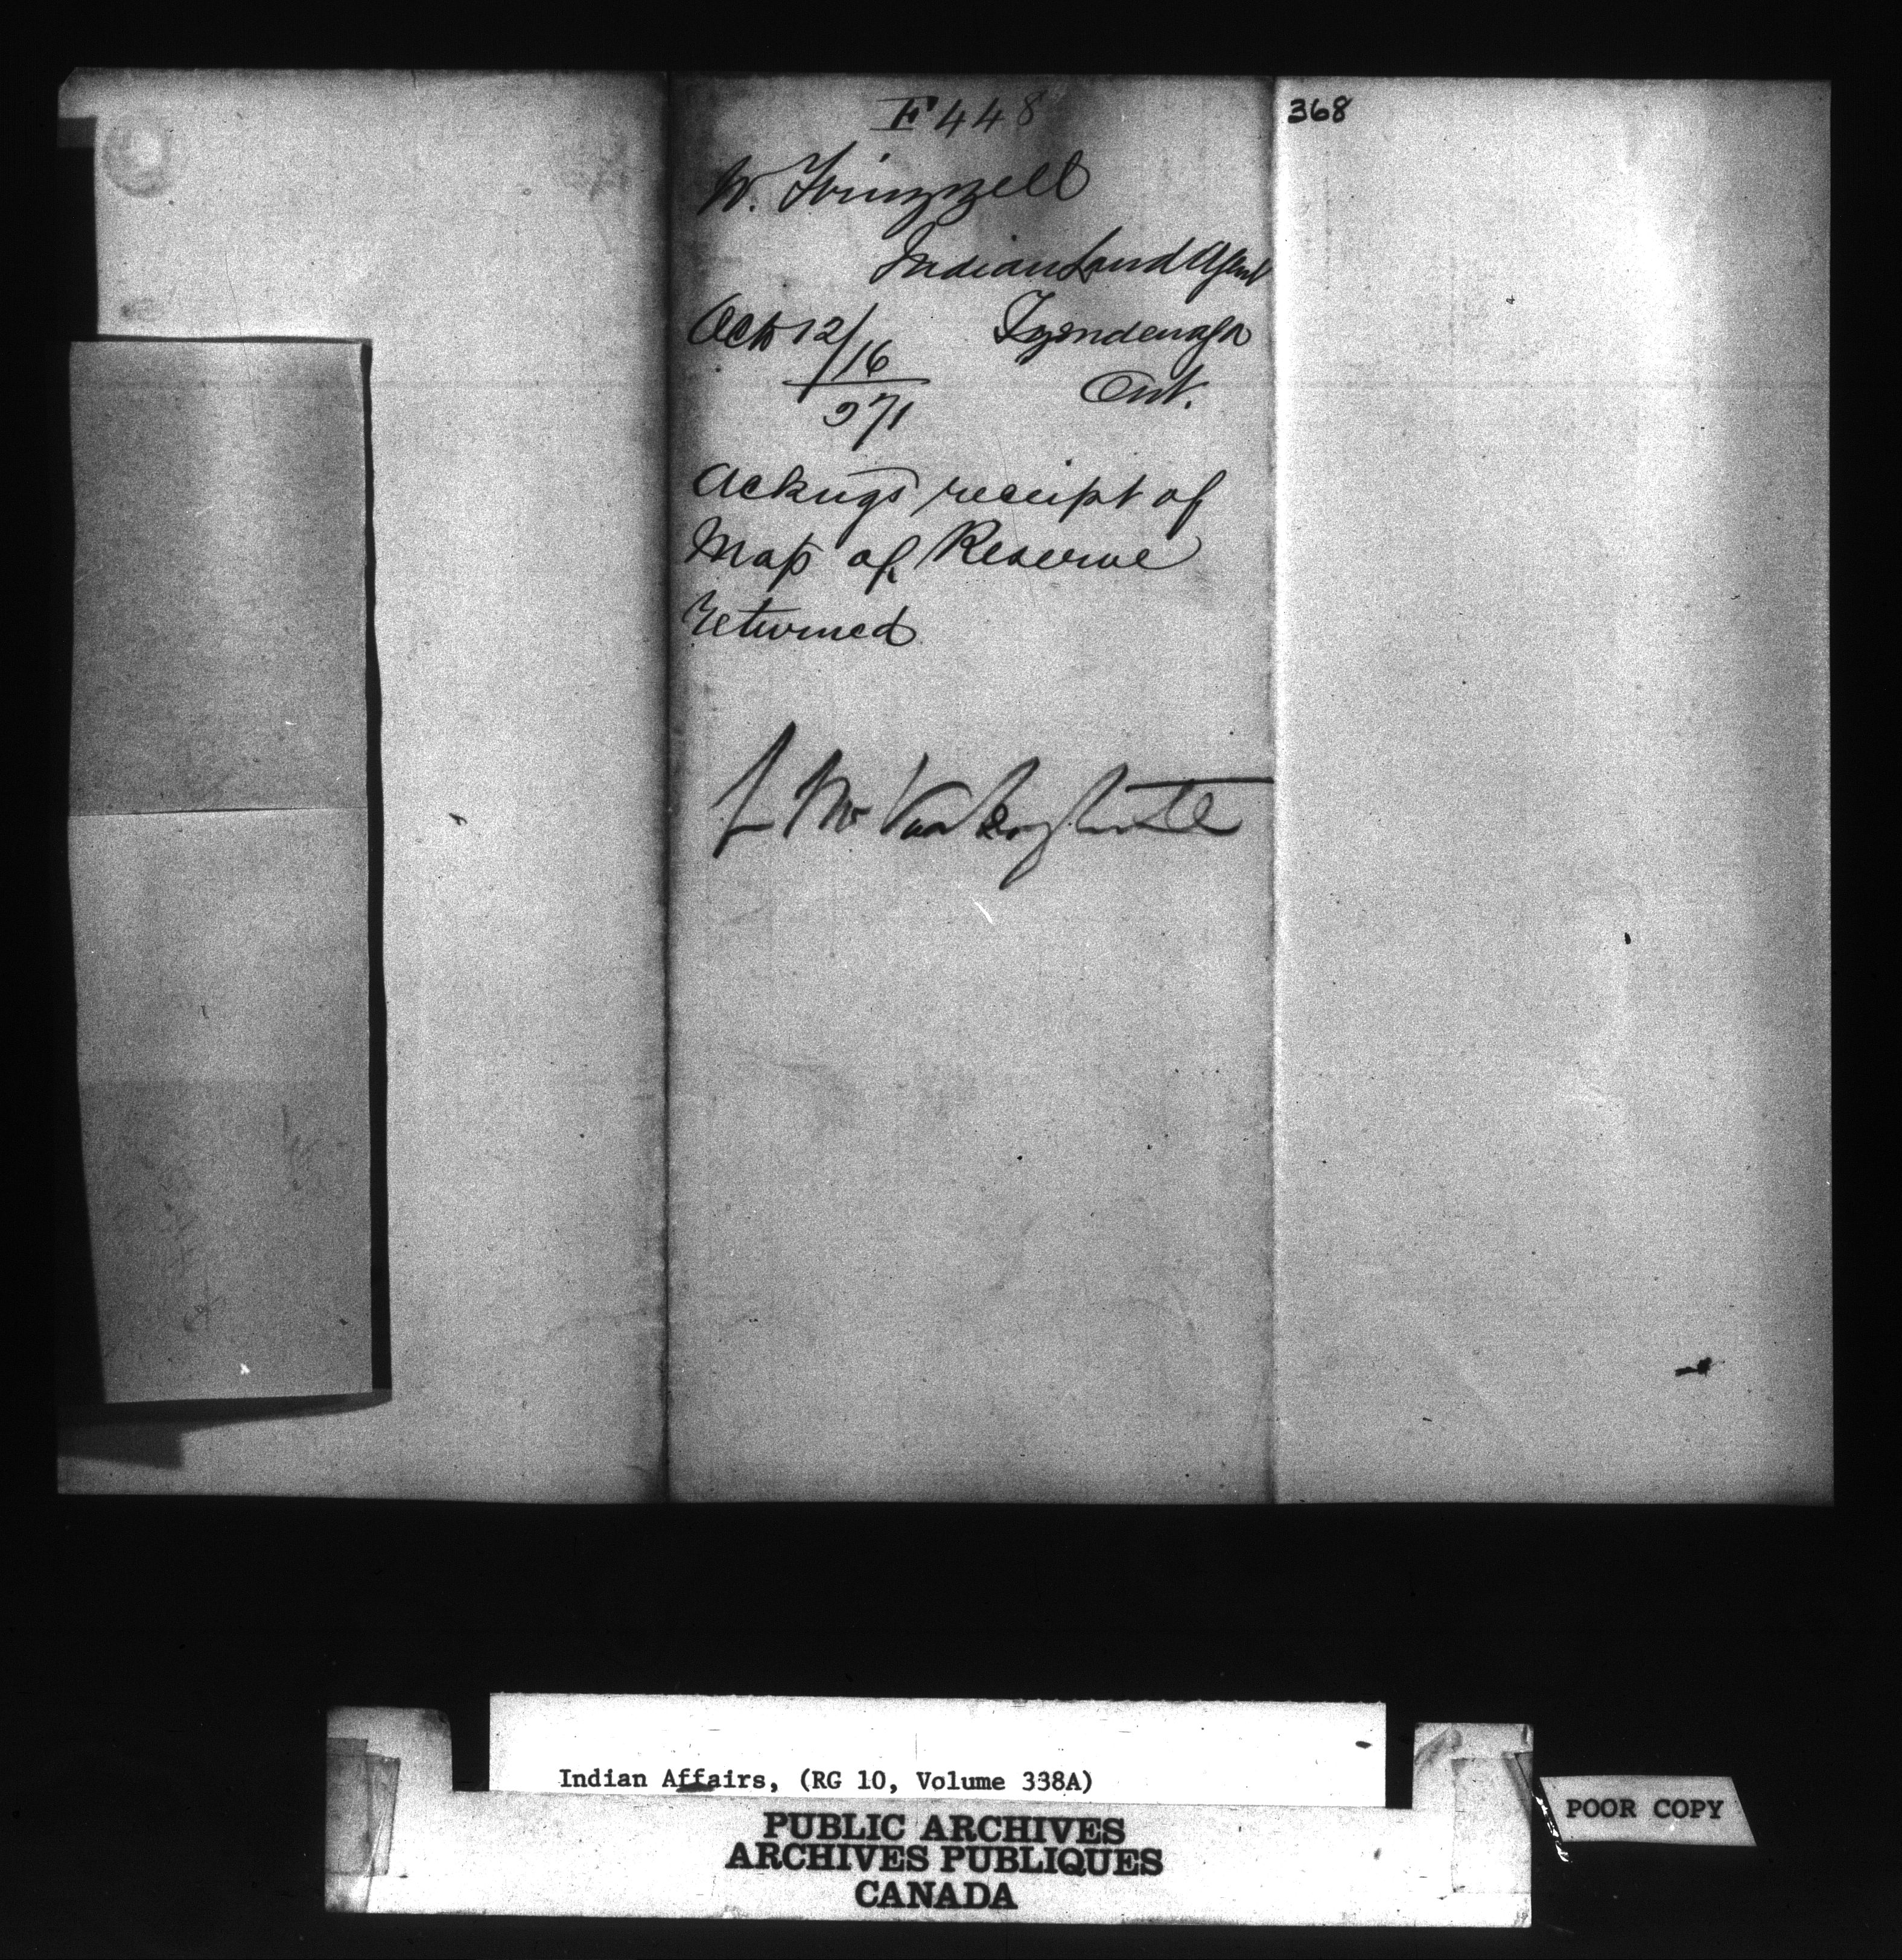 F 448
368
W. Frizzell
Indian Land Agent
Oct 12/16
Tyendenaga
971
Ont.
Ackngs receipt of
Map of Reserve
returned
Indian Affairs, (RG 10, Volume 338A)
PUBLIC ARCHIVES
ARCHIVES PUBLIQUES
CANADA
POOR COPY